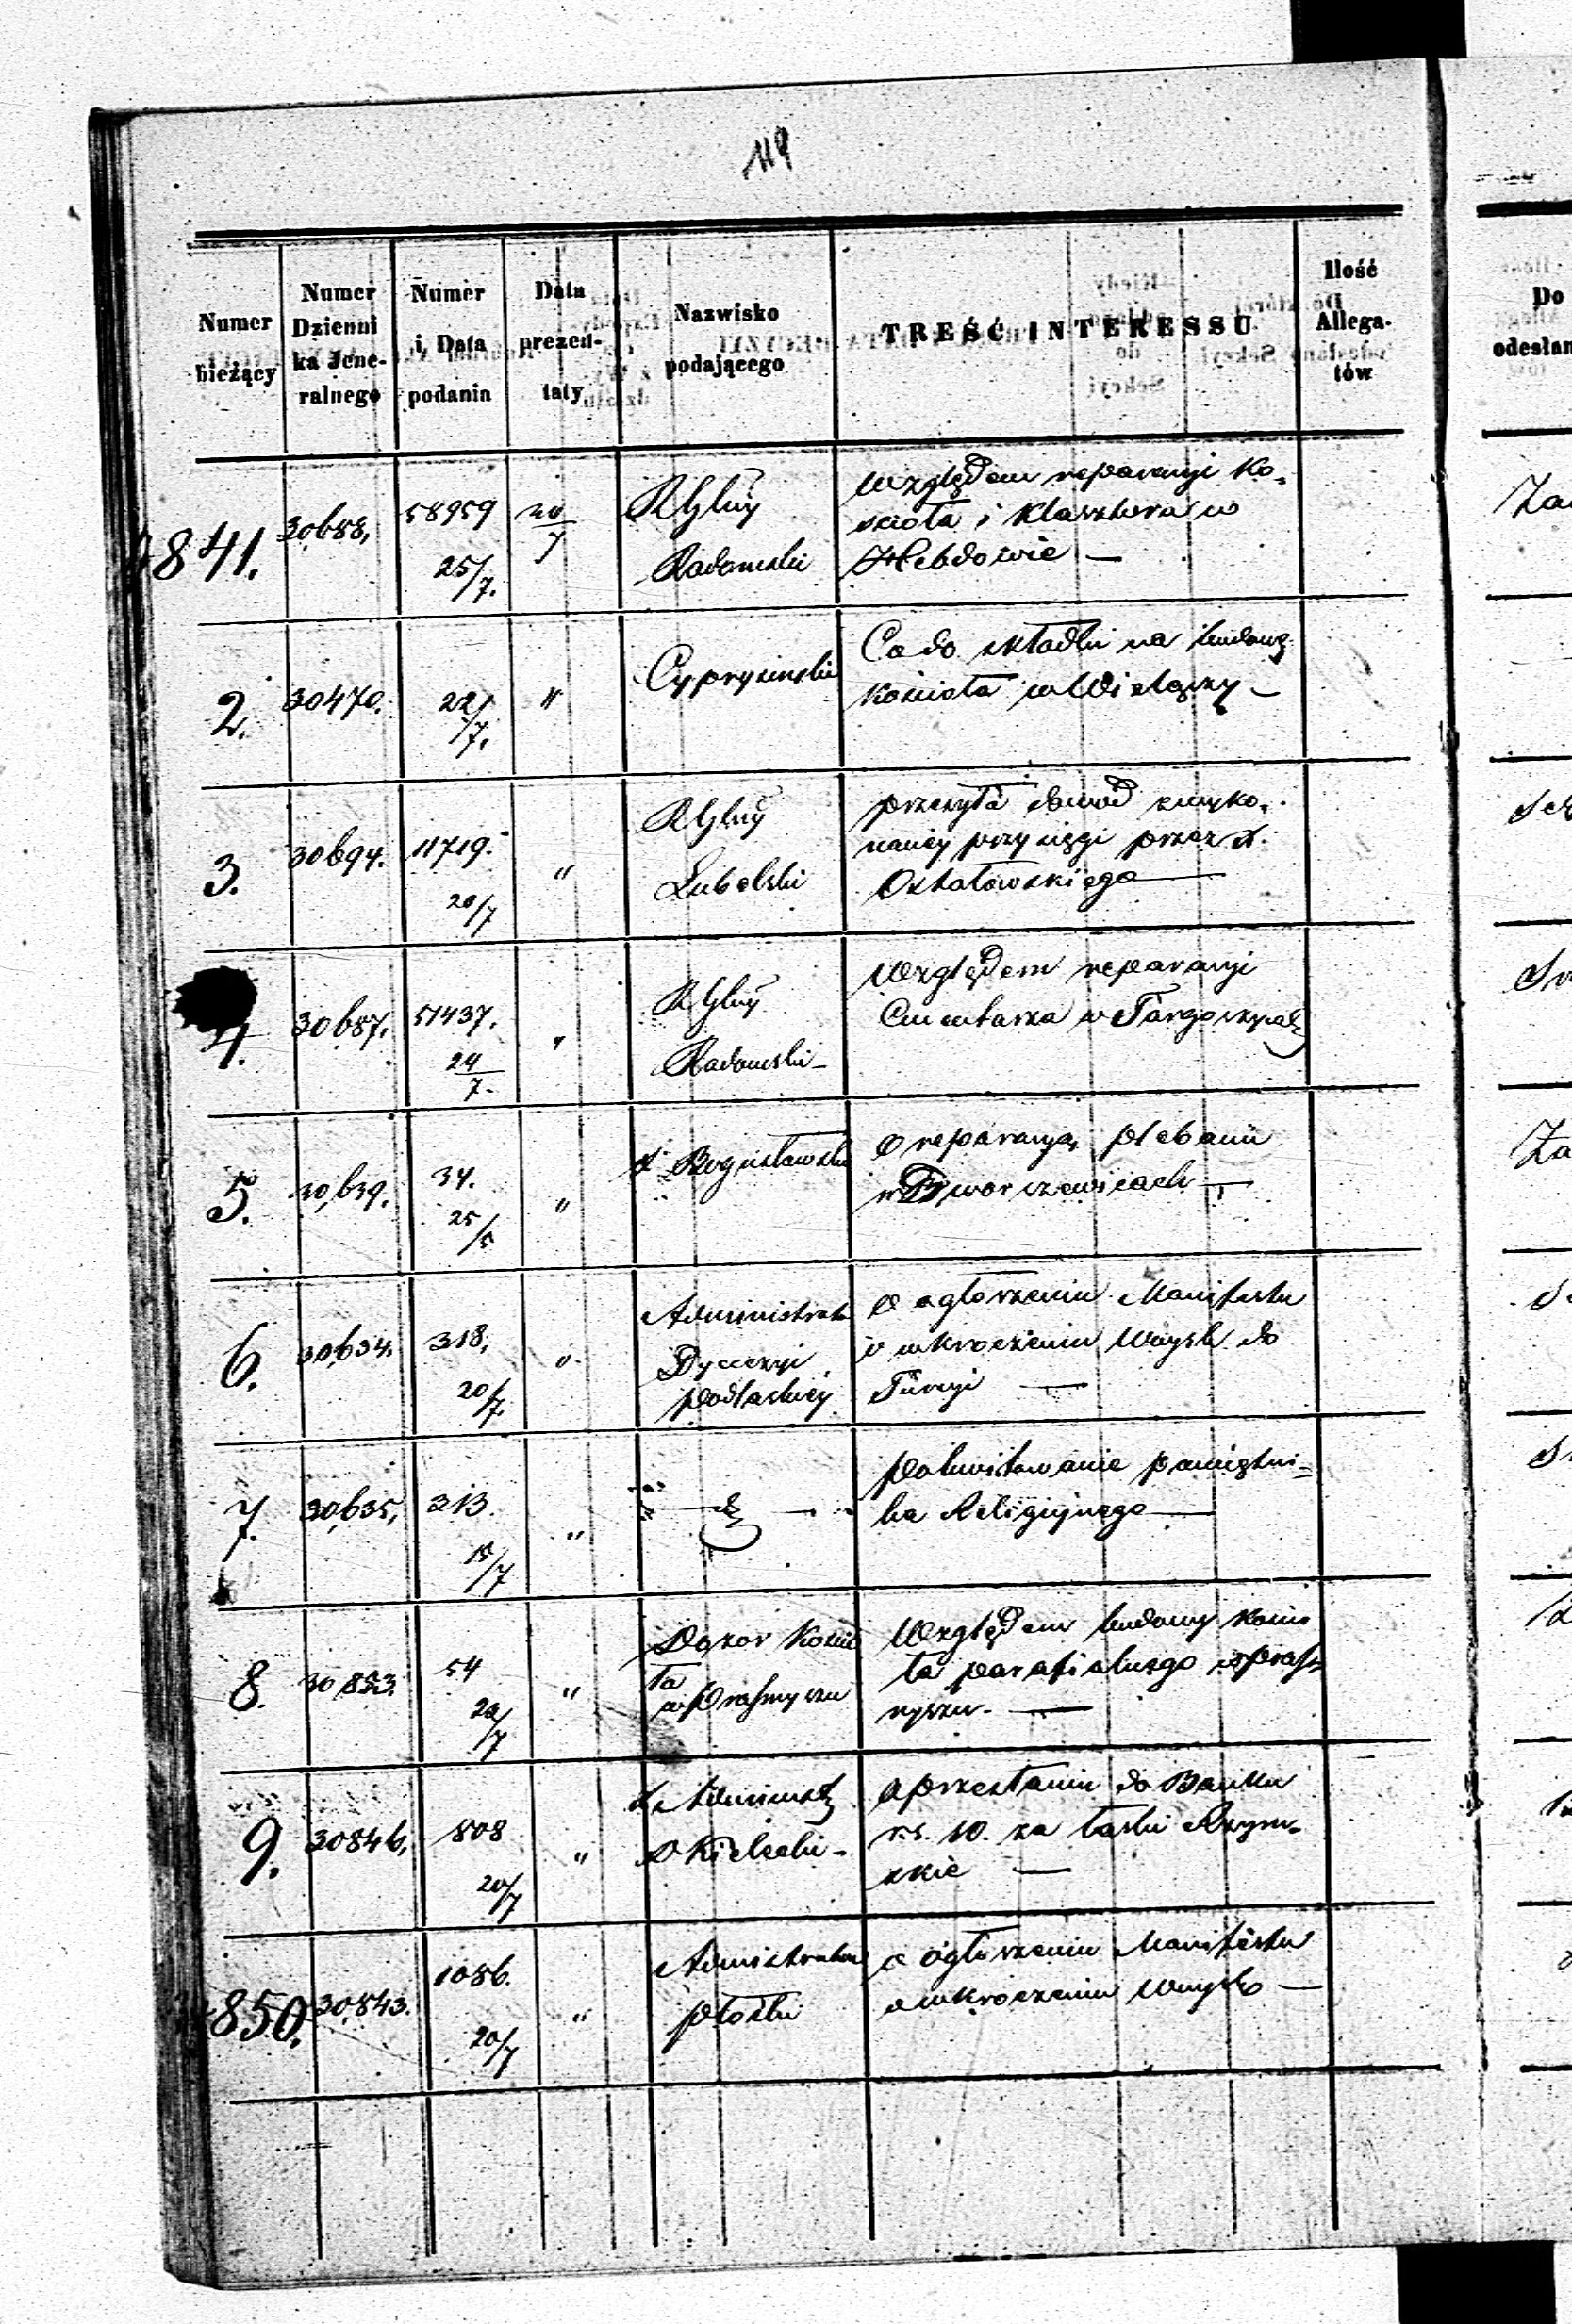 119
Numer bieżący | Numer Dziennika Jeneralnego | Numer i Data podania | Data prezentaty | Nazwisko podającego | TREŚĆ INTERESSU | Ilość Allegatów
Do
odesłan
4841. 30688, 58959 25/7. RGlny Radomski Względem reparacyi Ko-
ścioła i Klasztoru w
Hebdowie —
2. 30470. 22/7. " Cyprysinski Co do składki na budowę
Kościoła w Wielgiey —
3. 30694. 11719. 20/7 " RGlny Lubelski przesyła dowód z wyko-
naney przysięgi przez X.
Ostałowskiego —
4. 30687. 51437. 24/7. " RGlny Radomski — Względem reparacyi
Cmentarza w Targoszycach
5. 30639. 34. 25/5 " X Bogusławski O reparacyą plebanii
w Tworczewicach —
6. 30634. 318, 20/7. " Administrator
Dyecezyi
podlaskiey
O ogłoszeniu Manifestu
o wkroczeniu Woysk do
Turcyi —
7. 30635, 313. 15/7 " Pokwitowanie pamiętni-
ka Religijnego —
8. 54 " Dozor Kościo
ła
w Prasnyszu
Względem budowy Kościo
ła parafialnego w Pras-
nyszu. —
9. 30846, 808 20/7 " Administr
D Kielecki — O przesłaniu do Banku
r.s. 10. za łaski Rzym-
skie —
4850. 30843. 1086. 20/7 " Administrator
płocki
o ogłoszeniu Manifestu
o wkroczeniu Woysk —